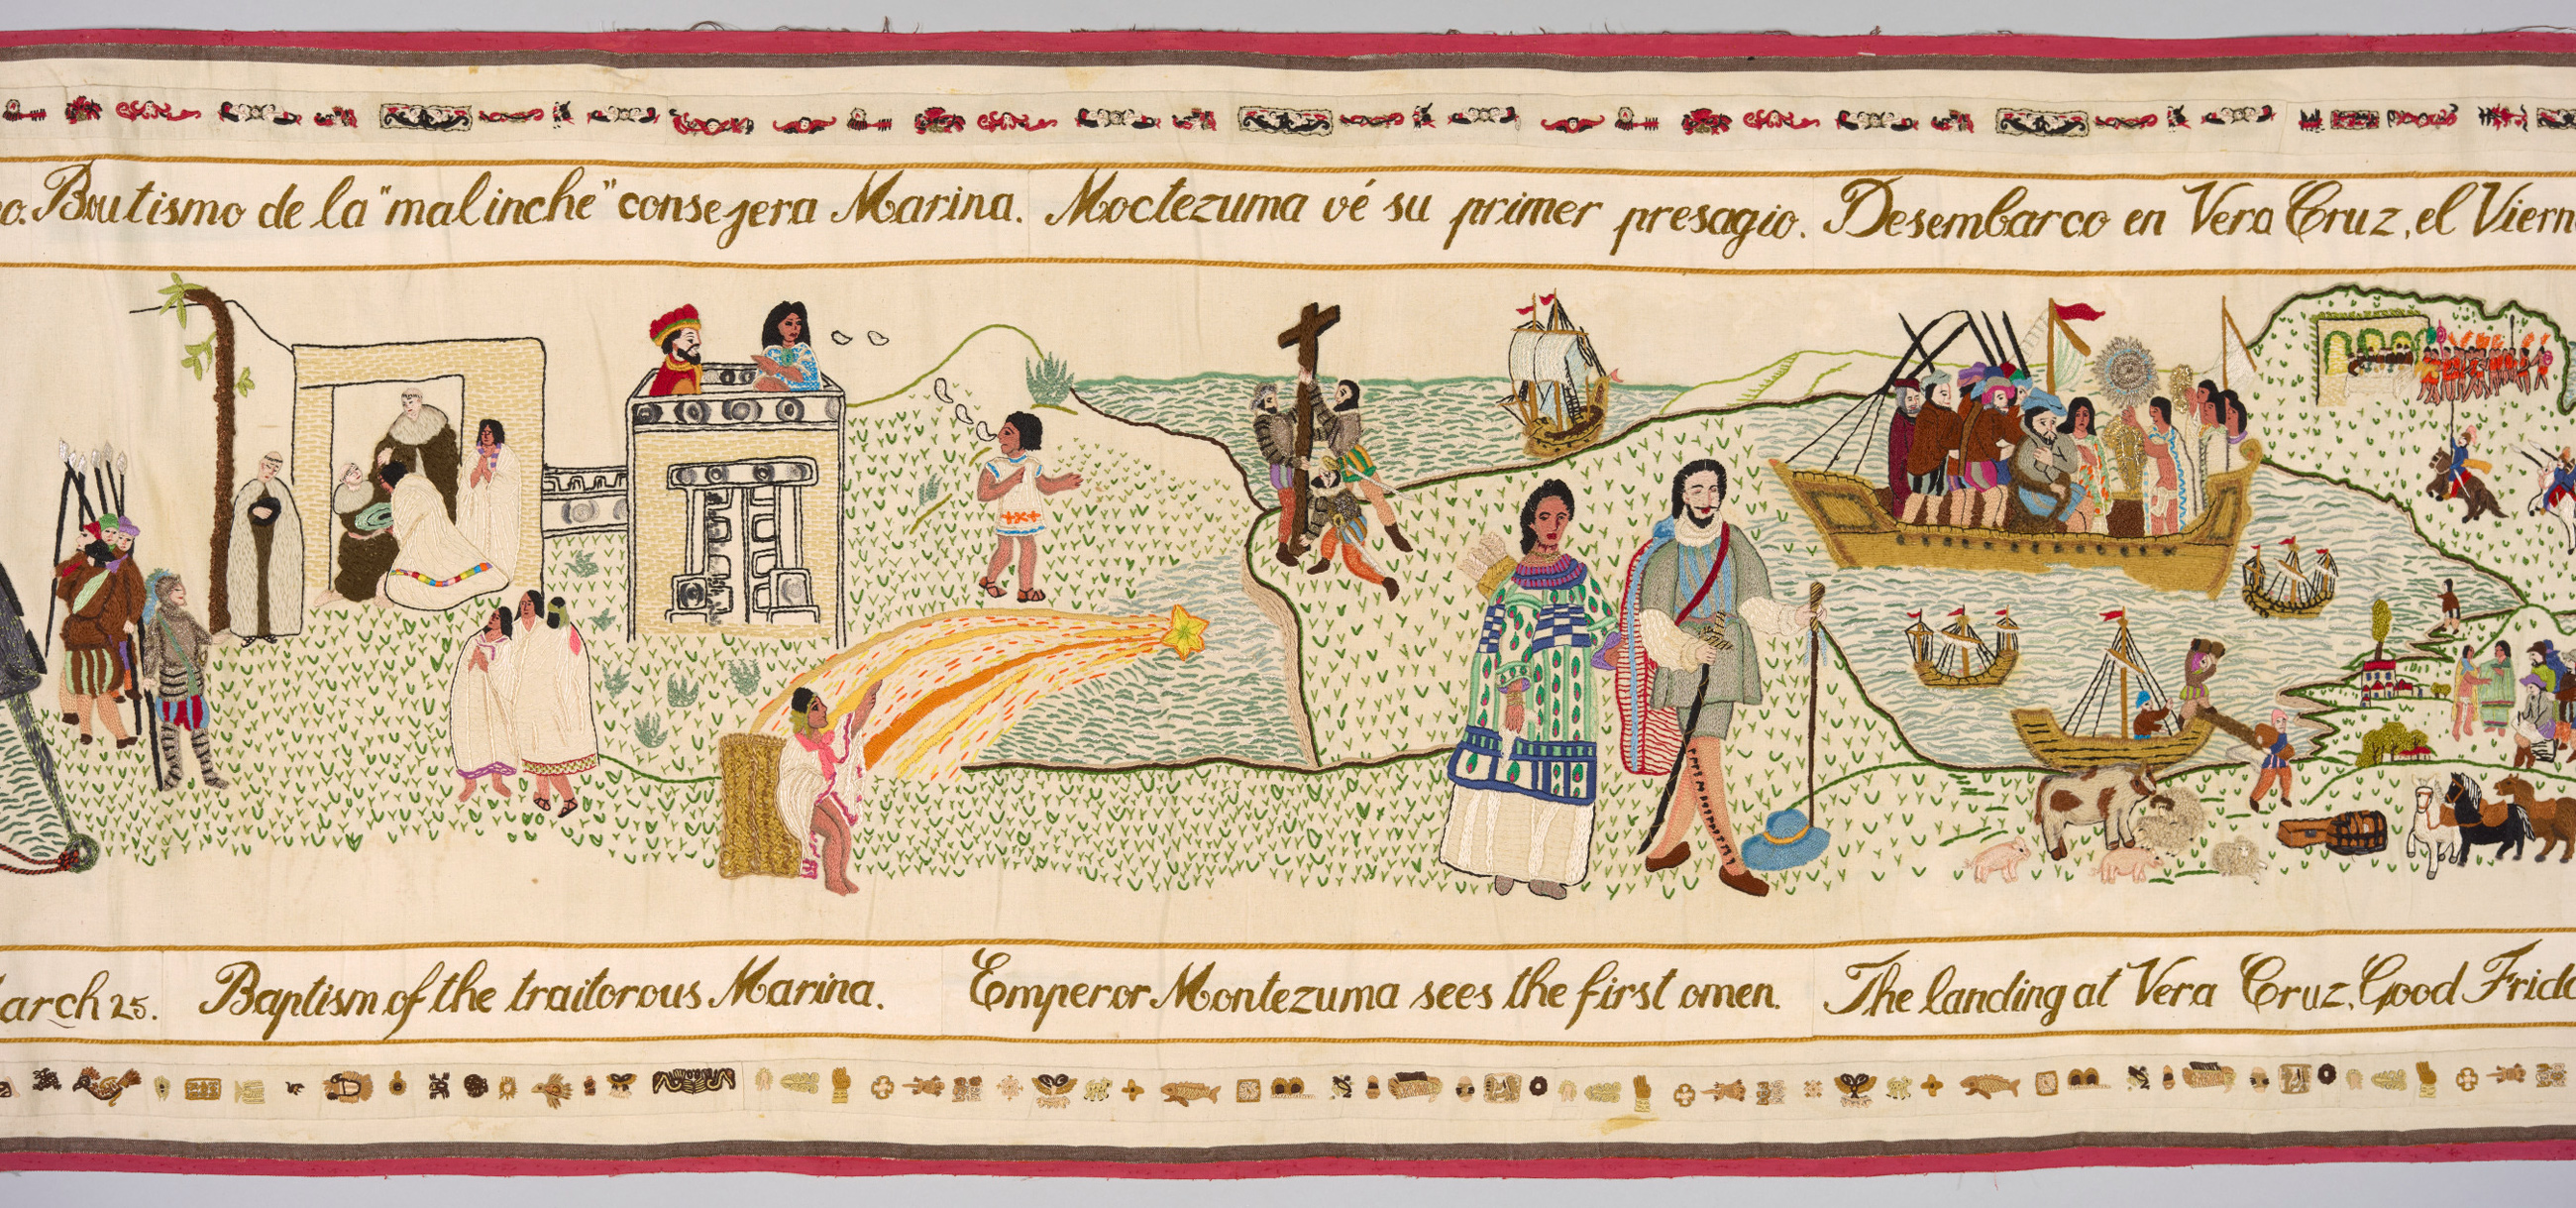 o. Bautismo de la "malinche" consejera Marina. Moctezuma vé su primer presagio. Desembarco en Vera Cruz, el Viern
arch 25. Baptism of the traitorous Marina. Emperor Montezuma sees the first omen. The landing at Vera Cruz, Good Frida